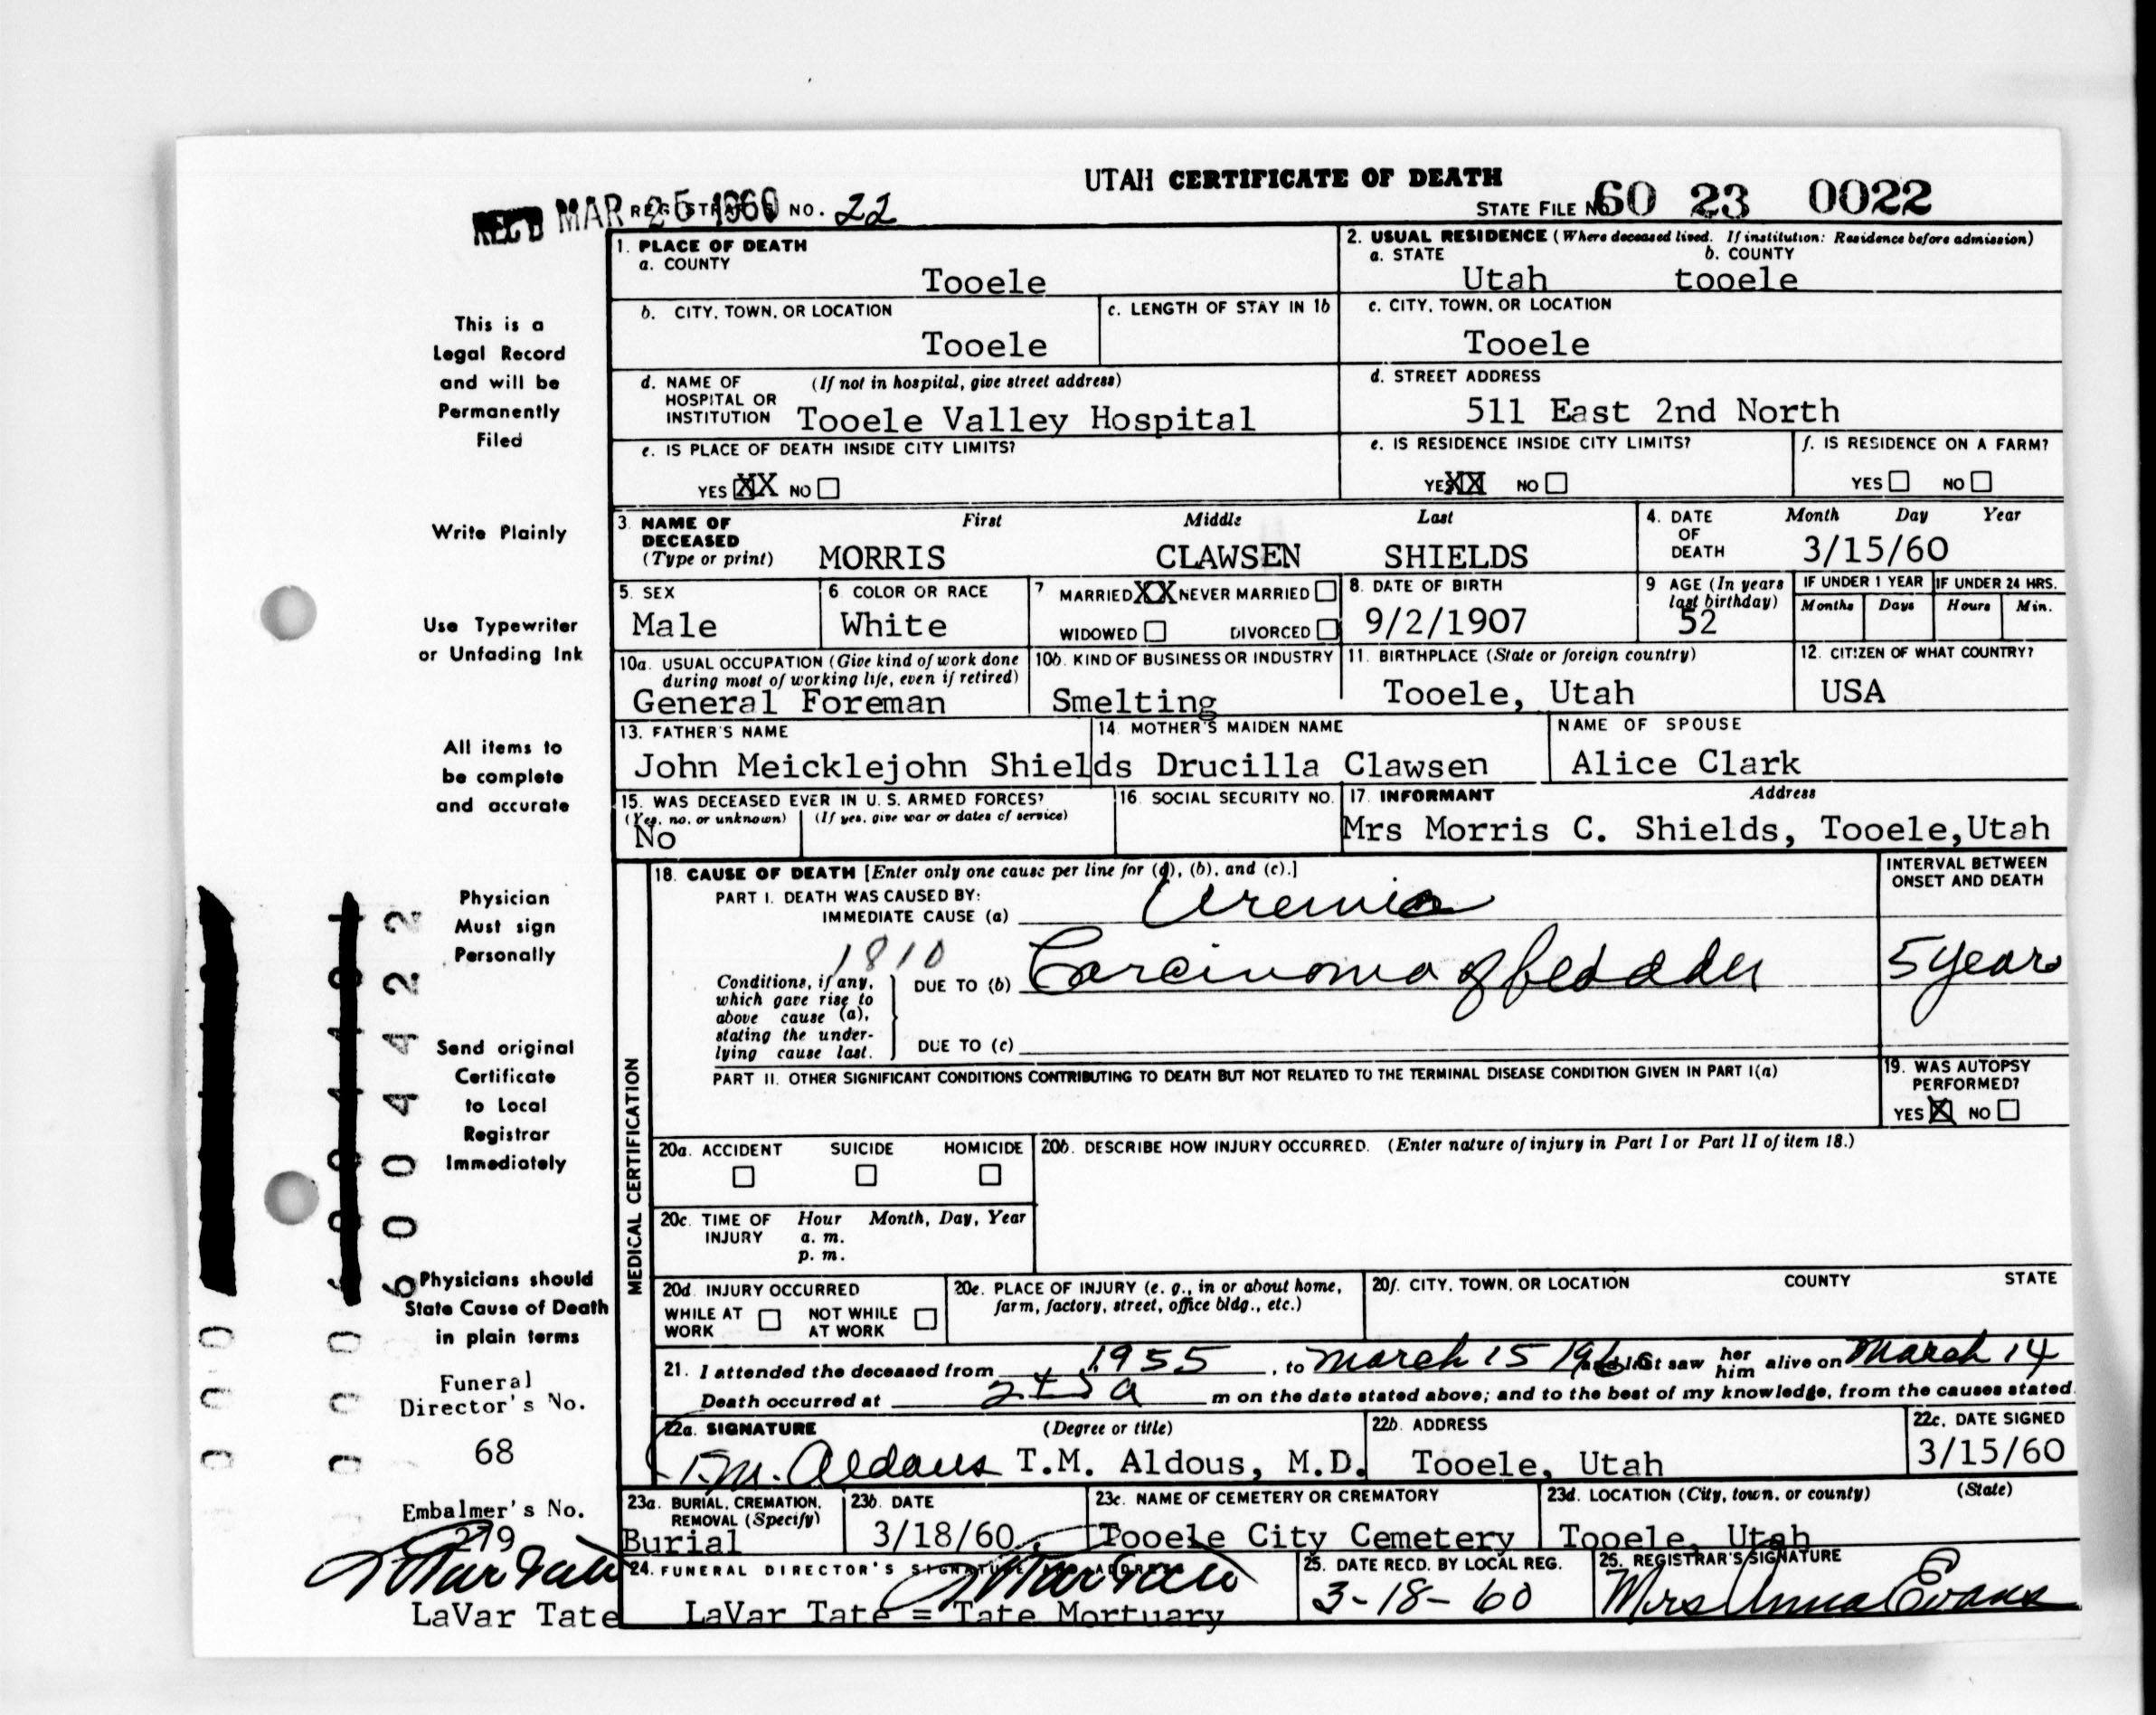 UTAH CERTIFICATE OF DEATH
REC'D MAR 25 1960 REGISTRAR'S NO. 22
STATE FILE NO. 60 23 0022
This is a
Legal Record
and will be
Permanently
Filed
Write Plainly
Use Typewriter
or Unfading Ink
All items to
be complete
and accurate
Physician
Must sign
Personally
Send original
Certificate
to Local
Registrar
Immediately
Physicians should
State Cause of Death
in plain terms
Funeral
Director's No.
68
Embalmer's No.
279
LaVar Tate
LaVar Tate
6004422
1. PLACE OF DEATH
a. COUNTY
Tooele
2. USUAL RESIDENCE (Where deceased lived. If institution: Residence before admission)
a. STATE b. COUNTY
Utah tooele
b. CITY, TOWN, OR LOCATION
Tooele
c. LENGTH OF STAY IN 1b
c. CITY, TOWN, OR LOCATION
Tooele
d. NAME OF (If not in hospital, give street address)
HOSPITAL OR
INSTITUTION Tooele Valley Hospital
d. STREET ADDRESS
511 East 2nd North
e. IS PLACE OF DEATH INSIDE CITY LIMITS?
YES XX NO
e. IS RESIDENCE INSIDE CITY LIMITS?
YES XX NO
f. IS RESIDENCE ON A FARM?
YES NO
3. NAME OF DECEASED First Middle Last
(Type or print) MORRIS CLAWSEN SHIELDS
4. DATE OF DEATH Month Day Year
3/15/60
5. SEX
Male
6. COLOR OR RACE
White
7 MARRIED XX NEVER MARRIED
WIDOWED DIVORCED
8. DATE OF BIRTH
9/2/1907
9 AGE (In years last birthday)
52
IF UNDER 1 YEAR IF UNDER 24 HRS.
Months Days Hours Min.
10a. USUAL OCCUPATION (Give kind of work done
during most of working life, even if retired)
General Foreman
10b. KIND OF BUSINESS OR INDUSTRY
Smelting
11. BIRTHPLACE (State or foreign country)
Tooele, Utah
12. CITIZEN OF WHAT COUNTRY?
USA
13. FATHER'S NAME
John Meicklejohn Shields
14. MOTHER'S MAIDEN NAME
Drucilla Clawsen
NAME OF SPOUSE
Alice Clark
15. WAS DECEASED EVER IN U. S. ARMED FORCES?
(Yes, no, or unknown) (If yes, give war or dates of service)
No
16. SOCIAL SECURITY NO.
17. INFORMANT Address
Mrs Morris C. Shields, Tooele,Utah
MEDICAL CERTIFICATION
18. CAUSE OF DEATH [Enter only one cause per line for (a), (b), and (c).]
PART I. DEATH WAS CAUSED BY:
IMMEDIATE CAUSE (a) Uremia
1810
Conditions, if any,
which gave rise to
above cause (a),
stating the under-
lying cause last.
DUE TO (b) Carcinoma of bladder
DUE TO (c)
INTERVAL BETWEEN
ONSET AND DEATH
5 years
PART II. OTHER SIGNIFICANT CONDITIONS CONTRIBUTING TO DEATH BUT NOT RELATED TO THE TERMINAL DISEASE CONDITION GIVEN IN PART I(a)
19. WAS AUTOPSY
PERFORMED?
YES X NO
20a. ACCIDENT SUICIDE HOMICIDE
20b. DESCRIBE HOW INJURY OCCURRED. (Enter nature of injury in Part I or Part II of item 18.)
20c. TIME OF INJURY Hour Month, Day, Year
a. m.
p. m.
20d. INJURY OCCURRED
WHILE AT WORK NOT WHILE AT WORK
20e. PLACE OF INJURY (e. g., in or about home,
farm, factory, street, office bldg., etc.)
20f. CITY, TOWN, OR LOCATION COUNTY STATE
21. I attended the deceased from 1955, to March 15 1960 and last saw her him alive on March 14
Death occurred at a m on the date stated above; and to the best of my knowledge, from the causes stated.
22a. SIGNATURE (Degree or title)
T.M. Aldous T.M. Aldous, M.D.
22b. ADDRESS
Tooele, Utah
22c. DATE SIGNED
3/15/60
23a. BURIAL, CREMATION,
REMOVAL (Specify)
Burial
23b. DATE
3/18/60
23c. NAME OF CEMETERY OR CREMATORY
Tooele City Cemetery
23d. LOCATION (City, town, or county) (State)
Tooele, Utah
24. FUNERAL DIRECTOR'S SIGNATURE ADDRESS
LaVar Tate
LaVar Tate = Tate Mortuary
25. DATE RECD. BY LOCAL REG.
3-18-60
25. REGISTRAR'S SIGNATURE
Mrs Anna Evans